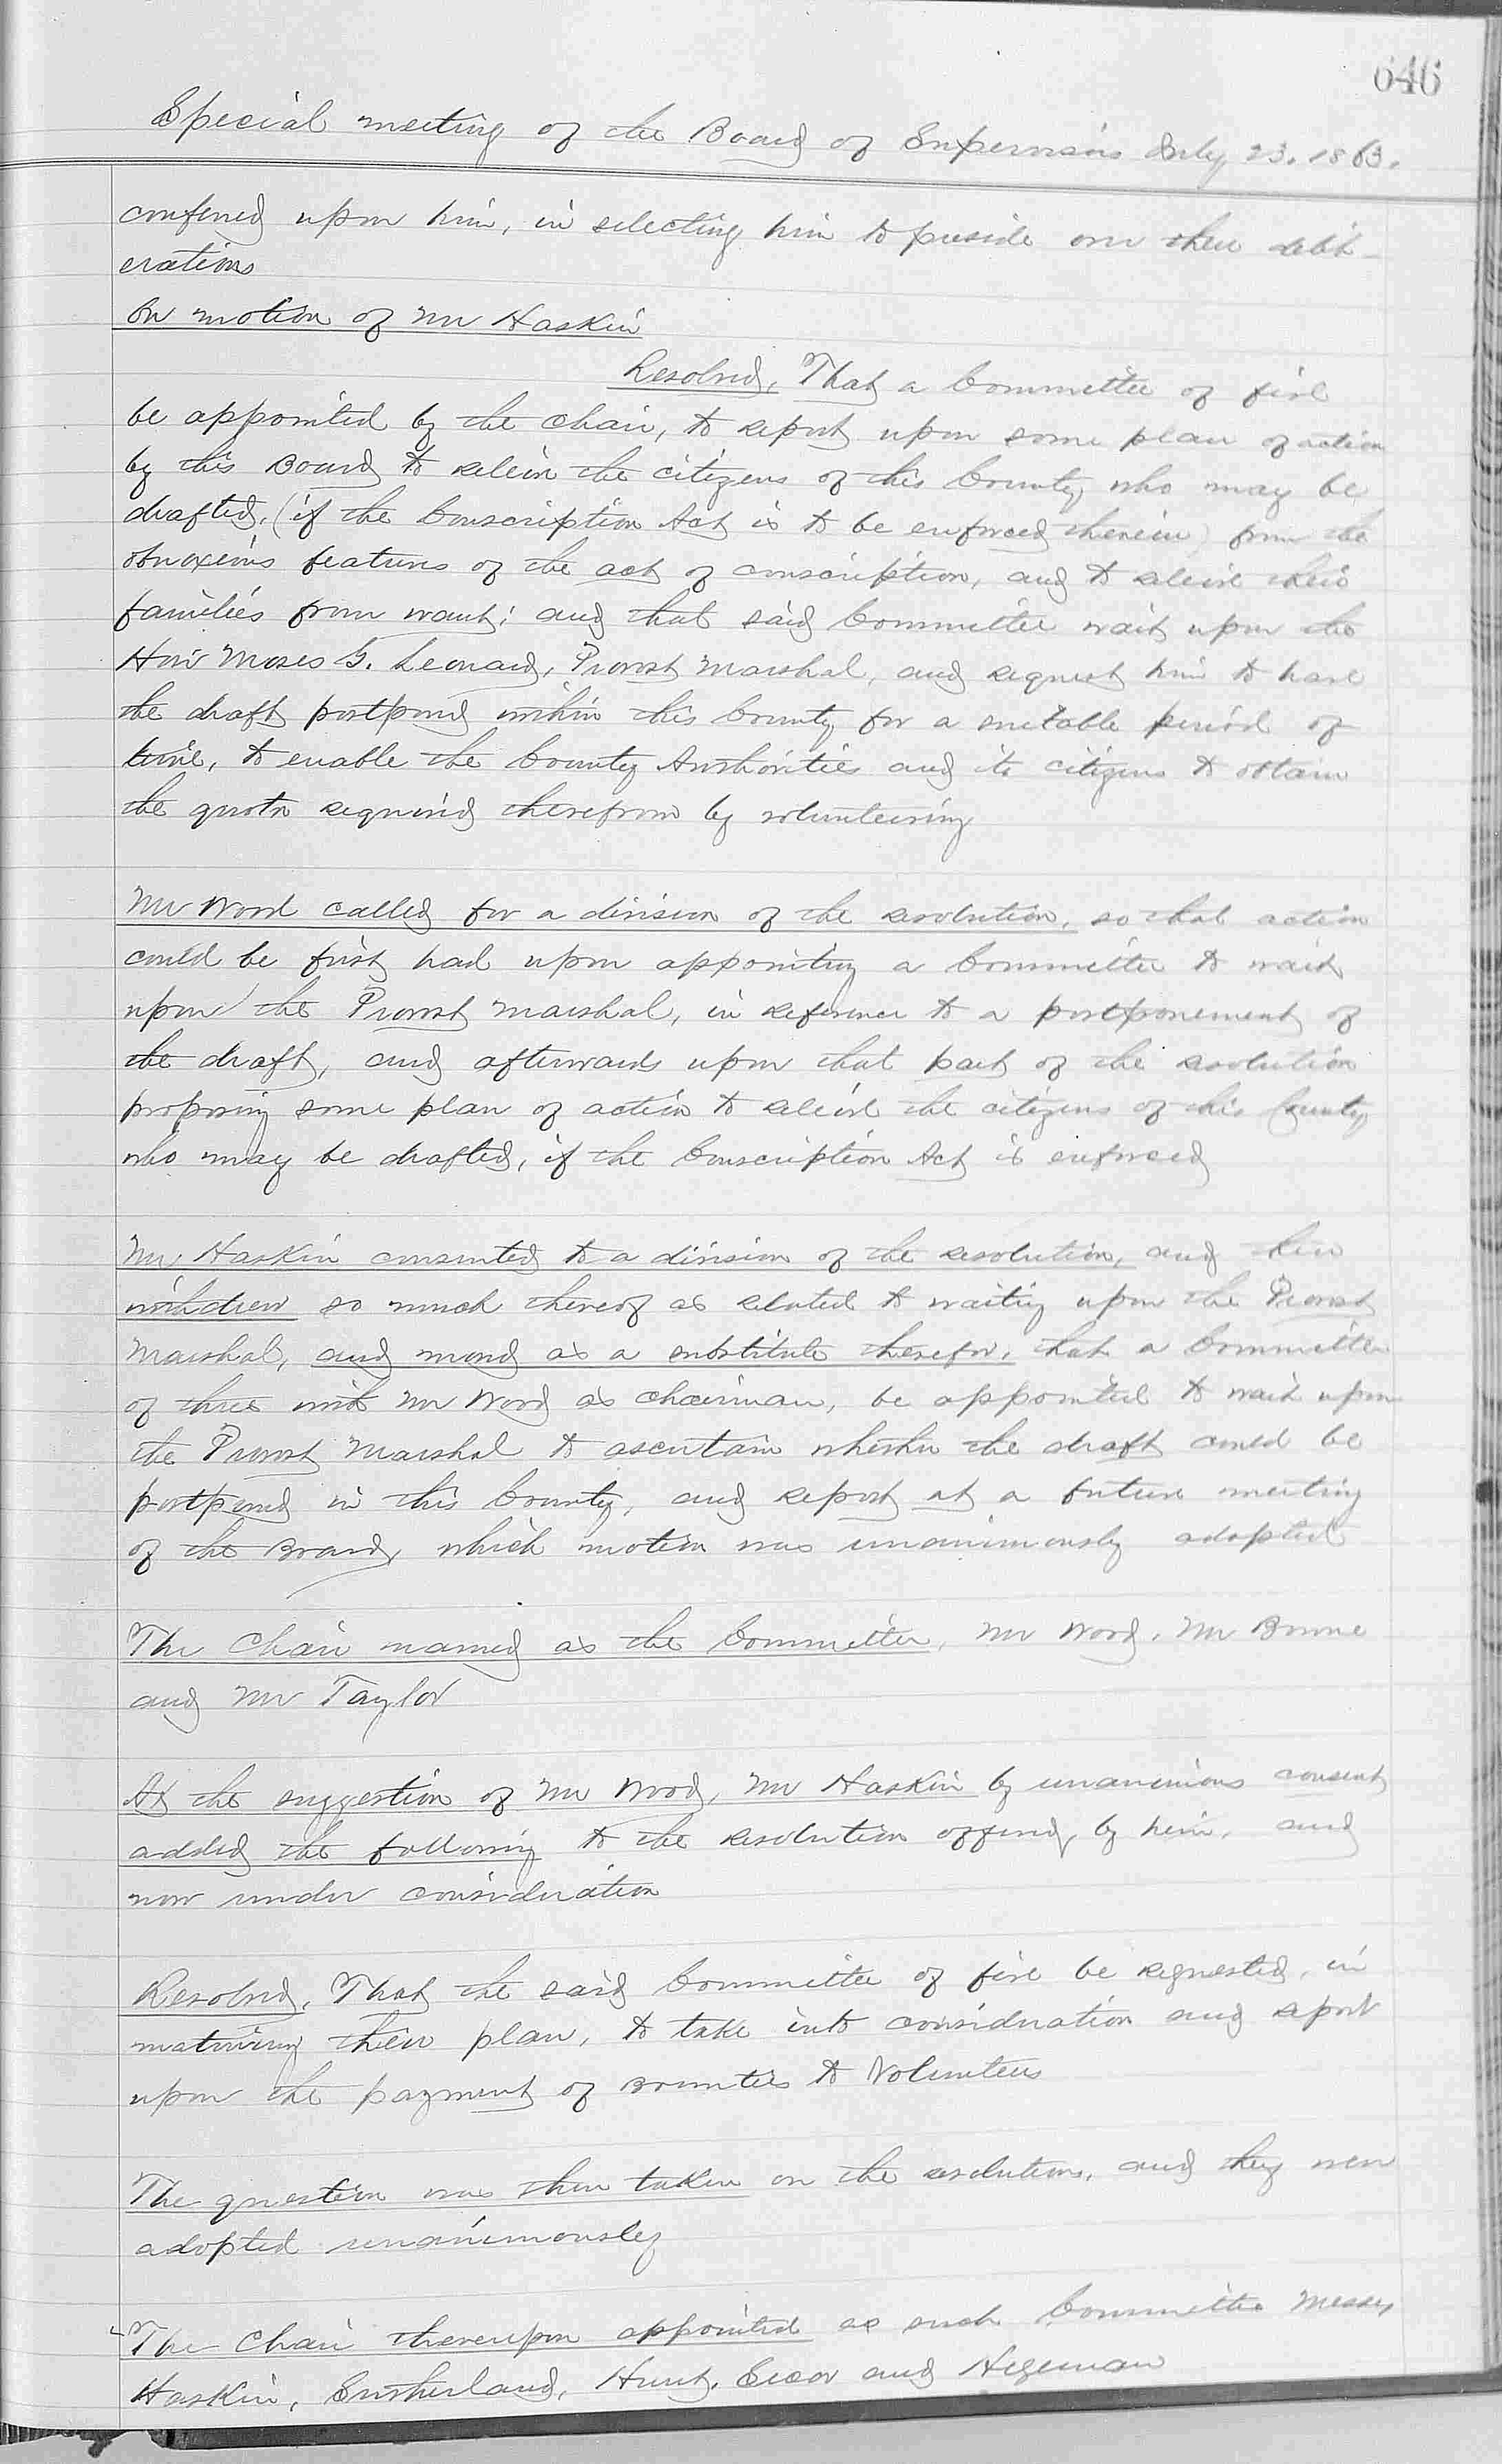 646
Special meeting of the Board of Supervisors July 23. 1863.
conferred upon him, in selecting him to preside over their delib-
erations
On motion of Mr Haskin
Resolved, That a Committee of five
be appointed by the Chair, to report upon some plan of action
by this Board to relieve the citizens of this County who may be
drafted, (if the Conscription Act is to be enforced therein) from the
obnoxious features of the act of conscription, and to relieve their
families from want; and that said Committee wait upon the
Hon Moses G. Leonard, Provost Marshal, and request him to have
the draft postponed within this County for a suitable period of
time, to enable the County Authorities and its citizens to obtain
the quota required therefrom by volunteering
Mr Wood called for a division of the resolution, so that action
could be first had upon appointing a Committee to wait
upon the Provost Marshal, in reference to a postponement of
the draft, and afterwards upon that part of the resolution
proposing some plan of action to relieve the citizens of this County
who may be drafted, if the Conscription Act is enforced
Mr Haskin consented to a division of the resolution, and then
withdrew so much thereof as related to waiting upon the Provost
Marshal, and moved as a substitute therefor, that a Committee
of three with Mr Wood as chairman, be appointed to wait upon
the Provost Marshal to ascertain whether the draft could be
postponed in this County, and report at a future meeting
of the Board, which motion was unanimously adopted
The Chair named as the Committee, Mr Wood, Mr Bowne
and Mr Taylor
At the suggestion of Mr Wood, Mr Haskin by unanimous consent
added the following to the resolution offered, by him, and
now under consideration
Resolved, That the said Committee of five be requested, in
maturing their plan, to take into consideration and report
upon the payment of Bounties to Volunteers
The question was then taken on the resolutions, and they were
adopted unanimously
The Chair thereupon appointed as such Committee Messrs
Haskin, Sutherland, Hunt, Secor and Hegeman